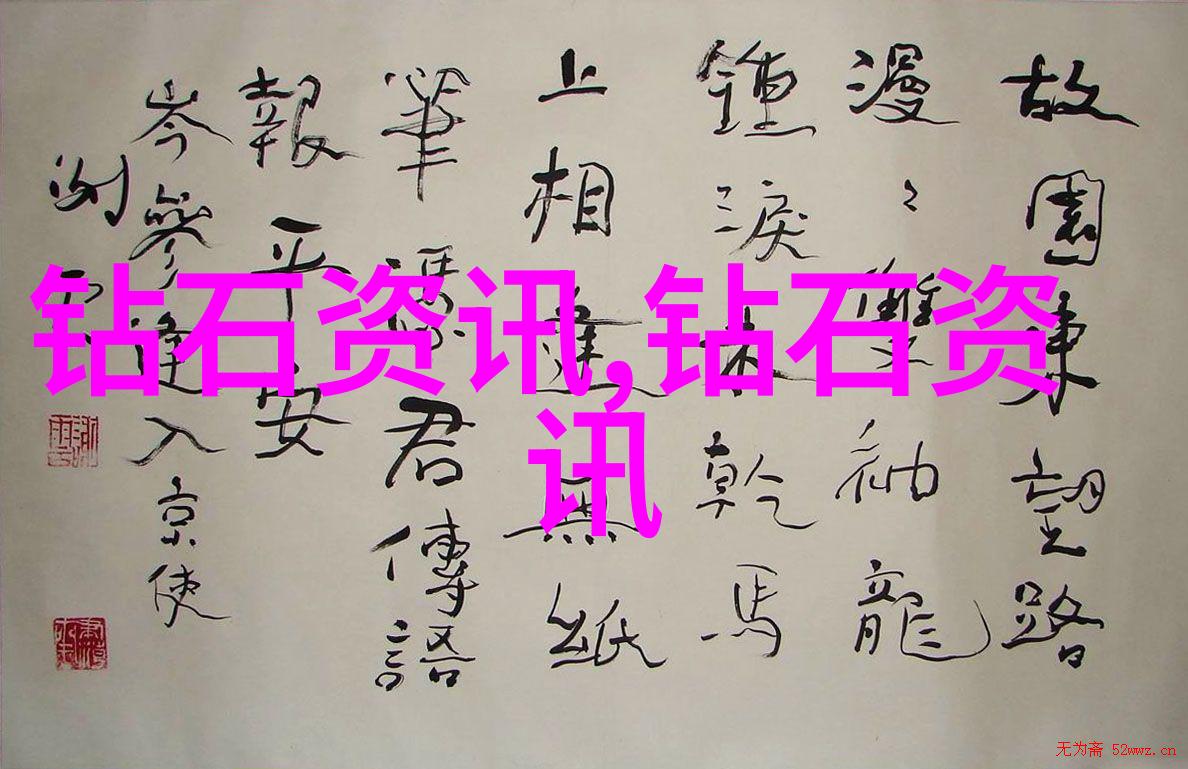 故園東望路
漫〻雙袖龍
鍾淚乾馬
上相逢無紙
筆憑君傳語
報平安
岑參逢入京使
钻石资讯,钻石资
讯
无为斋 52wwz.cn